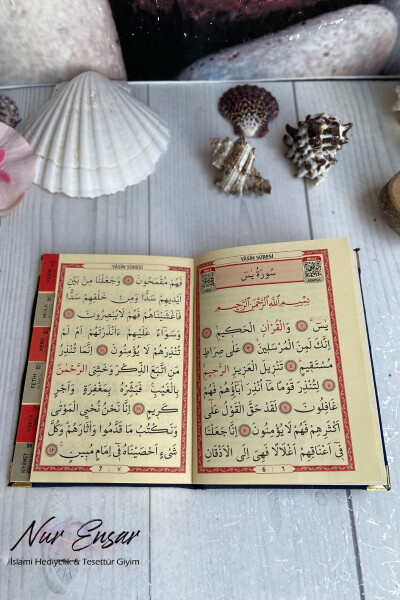 YÂSÎN SÛRESİ
سُورَةُ يٰسٓ
بِسْمِ اللّٰهِ الرَّحْمٰنِ الرَّحِيمِ
يٰسٓ ﴿١﴾ وَالْقُرْاٰنِ الْحَكِيمِ ﴿٢﴾
اِنَّكَ لَمِنَ الْمُرْسَلِينَ ﴿٣﴾ عَلٰى صِرَاطٍ
مُسْتَقِيمٍ ﴿٤﴾ تَنْزِيلَ الْعَزِيزِ الرَّحِيمِ
﴿٥﴾ لِتُنْذِرَ قَوْمًا مَٓا اُنْذِرَ اٰبَٓاؤُهُمْ فَهُمْ
غَافِلُونَ ﴿٦﴾ لَقَدْ حَقَّ الْقَوْلُ عَلٰٓى
اَكْثَرِهِمْ فَهُمْ لَا يُؤْمِنُونَ ﴿٧﴾ اِنَّا جَعَلْنَا
فِٓي اَعْنَاقِهِمْ اَغْلَالًا فَهِيَ اِلَى الْاَذْقَانِ
6 ٦
YÂSÎN SÛRESİ
فَهُمْ مُقْمَحُونَ ﴿٨﴾ وَجَعَلْنَا مِنْ بَيْنِ
اَيْدِيهِمْ سَدًّا وَمِنْ خَلْفِهِمْ سَدًّا
فَاَغْشَيْنَاهُمْ فَهُمْ لَا يُبْصِرُونَ ﴿٩﴾
وَسَوَٓاءٌ عَلَيْهِمْ ءَاَنْذَرْتَهُمْ اَمْ لَمْ
تُنْذِرْهُمْ لَا يُؤْمِنُونَ ﴿١٠﴾ اِنَّمَا تُنْذِرُ
مَنِ اتَّبَعَ الذِّكْرَ وَخَشِيَ الرَّحْمٰنَ
بِالْغَيْبِ فَبَشِّرْهُ بِمَغْفِرَةٍ وَاَجْرٍ
كَرِيمٍ ﴿١١﴾ اِنَّا نَحْنُ نُحْيِ الْمَوْتٰى
وَنَكْتُبُ مَا قَدَّمُوا وَاٰثَارَهُمْ وَكُلَّ
شَيْءٍ اَحْصَيْنَاهُ فِٓي اِمَامٍ مُبِينٍ ﴿١٢﴾
7 ٧
MÜLK
FETİH
KIYAMET
Nur Ensar
İslami Hediyelik & Tesettür Giyim